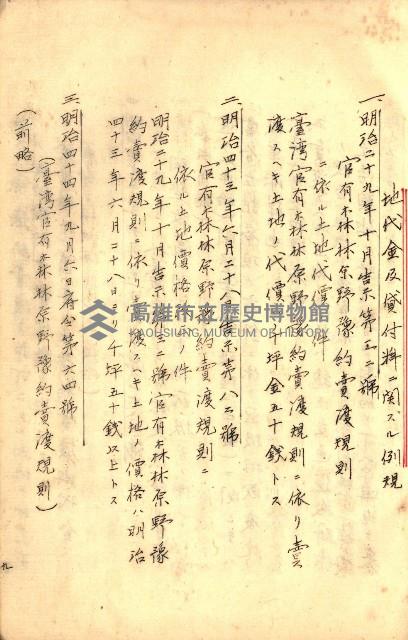 地代金及貸付料ニ関スル例規
一、明治二十九年十月告示第三二號
官有森林原野豫約賣渡規則
ニ依ル土地代價ノ件
臺灣官有森林原野豫約賣渡規則ニ依リ賣
渡スヘキ土地ノ代價ハ千坪金五十錢トス
二、明治四十三年六月二十八日告示第八六號
官有森林原野豫約賣渡規則ニ
依ル土地價格ノ件
明治二十九年十月告示三二號官有森林原野豫
約賣渡規則ニ依リ賣渡スヘキ土地ノ價格ハ明治
四十三年六月二十八日ヨリ千坪五十錢以上トス
三、明治四十四年九月六日府令第六四號
(臺灣官有森林原野豫約賣渡規則)
(前略)
高雄市立歷史博物館
KAOHSIUNG MUSEUM OF HISTORY
九